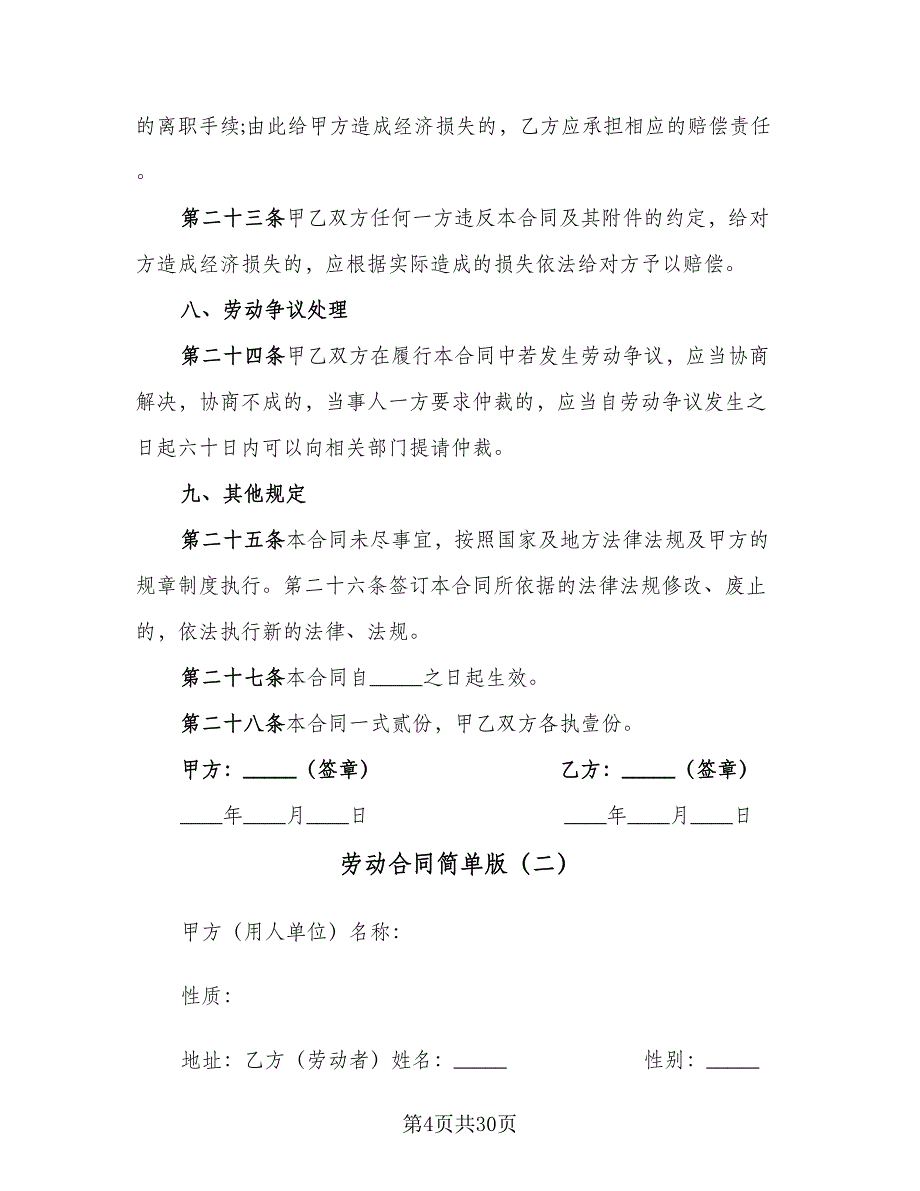 的离职手续;由此给甲方造成经济损失的，乙方应承担相应的赔偿责任
。
第二十三条甲乙双方任何一方违反本合同及其附件的约定，给对
方造成经济损失的，应根据实际造成的损失依法给对方予以赔偿。
八、劳动争议处理
第二十四条甲乙双方在履行本合同中若发生劳动争议，应当协商
解决，协商不成的，当事人一方要求仲裁的，应当自劳动争议发生之
日起六十日内可以向相关部门提请仲裁。
九、其他规定
第二十五条本合同未尽事宜，按照国家及地方法律法规及甲方的
规章制度执行。第二十六条签订本合同所依据的法律法规修改、废止
的，依法执行新的法律、法规。
第二十七条本合同自_____之日起生效。
第二十八条本合同一式贰份，甲乙双方各执壹份。
甲方：_____（签章） 乙方：_____（签章）
____年____月____日 ____年____月____日
劳动合同简单版（二）
甲方（用人单位）名称：
性质：
地址：乙方（劳动者）姓名：_____ 性别：_____
第4页共30页